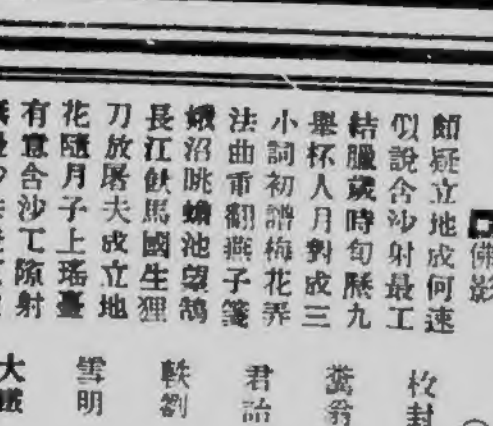 佛影
頗疑立地成何速
似說含沙射最工
枚封
結臘歲時旬勝九
舉杯人月對成三
糞翁
小詞初譜梅花弄
法曲重翻燕子箋
君詒
沼眺蟾池望鵠
長江飲馬國生狸
軼劉
刀放屠夫成立地
花隨月子上瑤臺
雪明
有意含沙工隙射
大